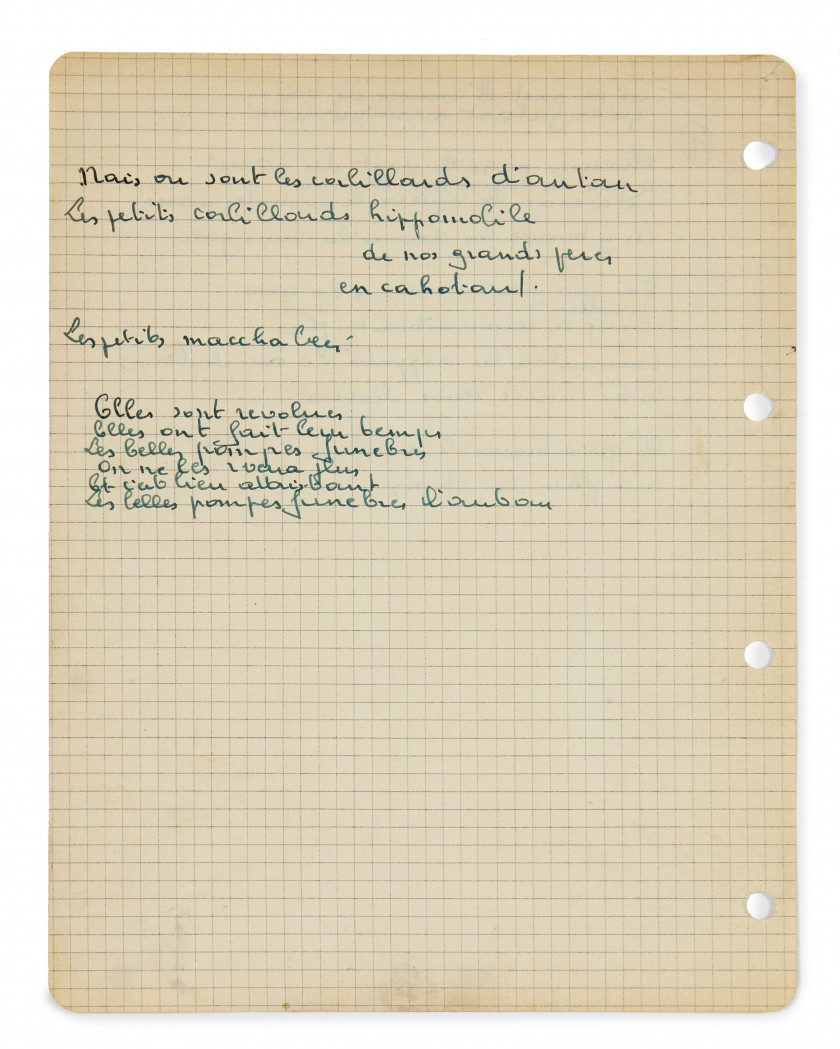 Mais ou sont les corbillards d'antan
Les petits corbillards hippomobile
de nos grands peres
en cahotant.
Les petits macchabees
Elles sont revolues
Elles ont fait leur temps
Les belles pompes funebres
On ne les verra plus
Et c'est bien attristant
Les belles pompes funebres d'antan